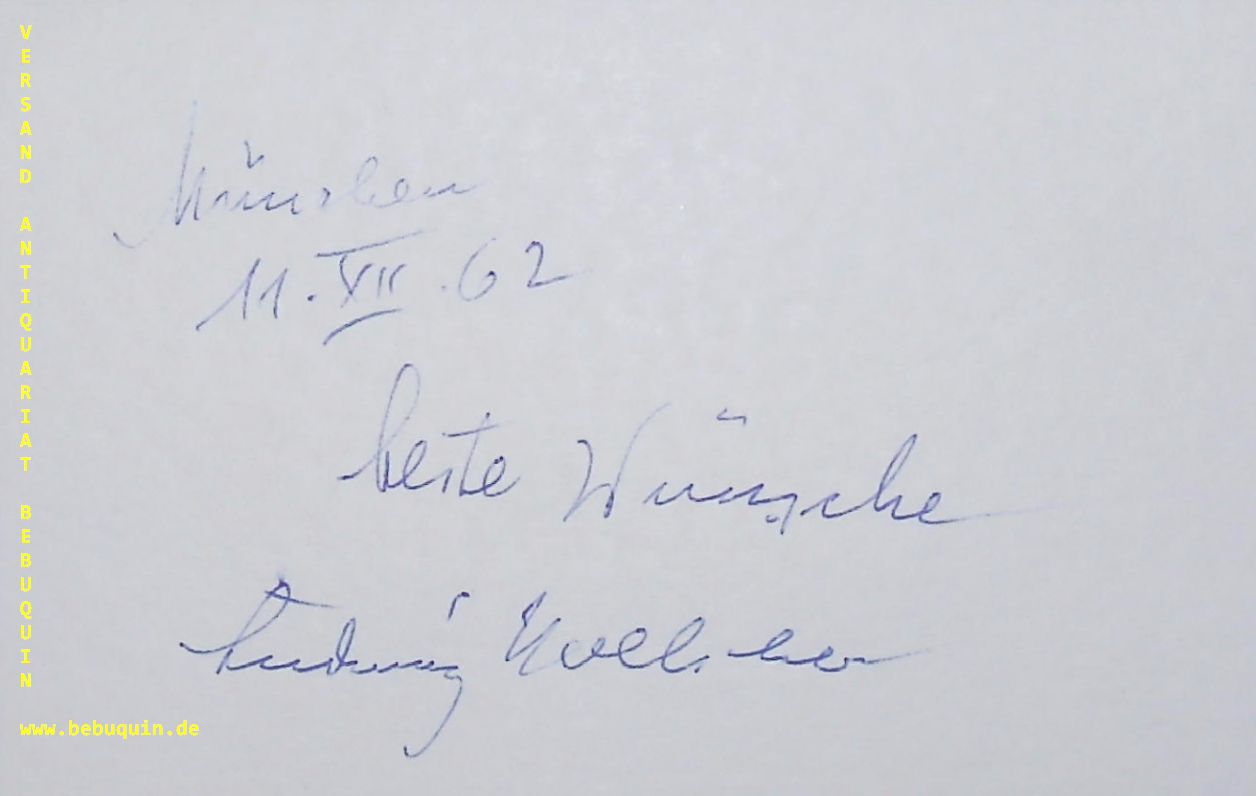 VERSAND ANTIQUARIAT BEBUQUIN
München
11.XII.62
beste Wünsche
Ludwig Hoelscher
www.bebuquin.de